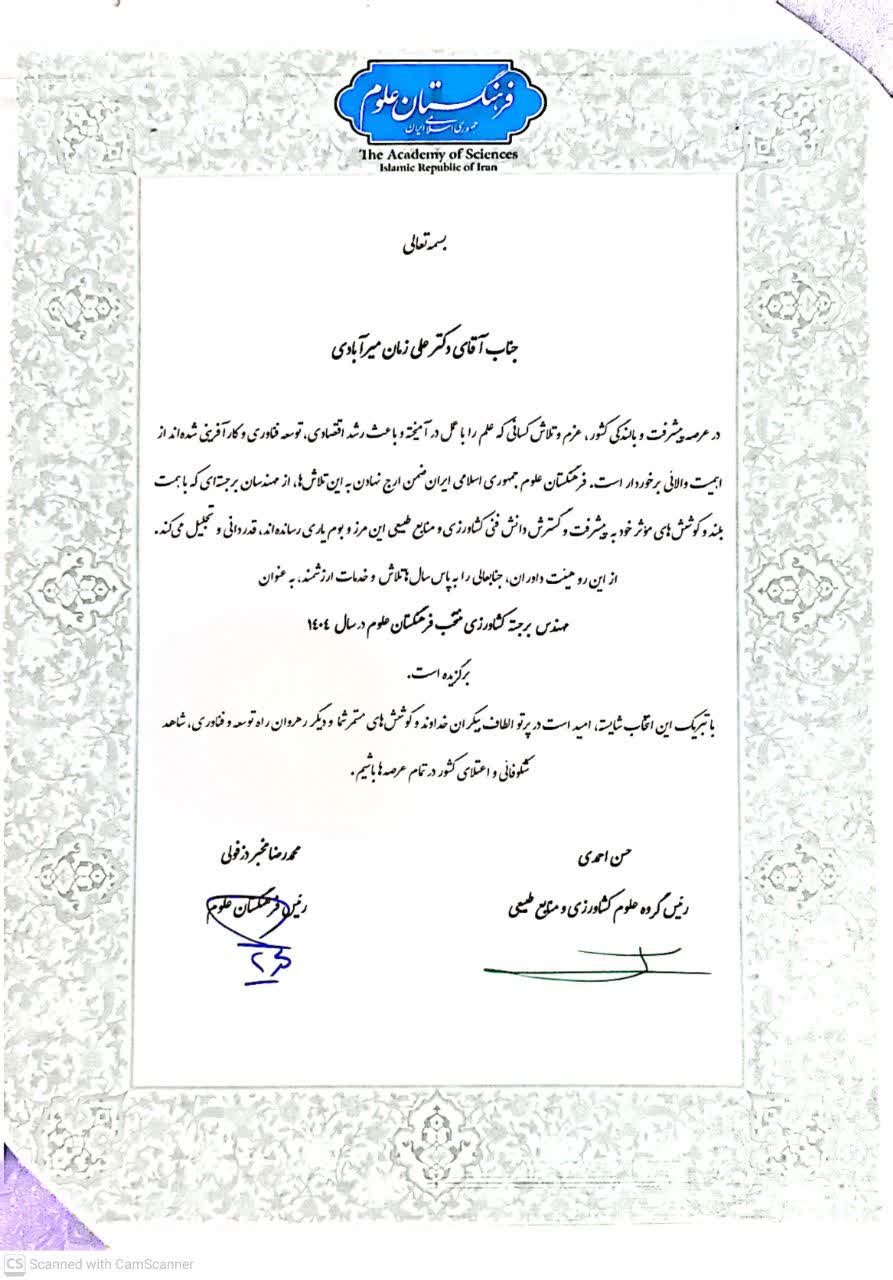 فرهنگستان علوم
جمهوری اسلامی ایران
The Academy of Sciences
Islamic Republic of Iran
بسمه تعالی
جناب آقای دکتر علی زمان میرآبادی
در عرصه پیشرفت و بالندگی کشور، عزم و تلاش کسانی که علم را با عمل در آمیخته و باعث رشد اقتصادی، توسعه فناوری و کارآفرینی شده‌اند از
اهمیت والائی برخوردار است. فرهنگستان علوم جمهوری اسلامی ایران ضمن ارج نهادن به این تلاش‌ها، از مهندسان برجسته‌ای که با همت
بلند و کوشش‌های مؤثر خود به پیشرفت و گسترش دانش فنی کشاورزی و منابع طبیعی این مرز و بوم یاری رسانده‌اند، قدردانی و تجلیل می‌کند.
از این رو هیئت داوران، جنابعالی را به پاس سال‌ها تلاش و خدمات ارزشمند، به عنوان
مهندس برجسته کشاورزی منتخب فرهنگستان علوم در سال ۱۴۰۴
برگزیده است.
با تبریک این انتخاب شایسته، امید است در پرتو الطاف بیکران خداوند و کوشش‌های مستمر شما و دیگر رهروان راه توسعه و فناوری، شاهد
شکوفائی و اعتلای کشور در تمام عرصه‌ها باشیم.
حسن احمدی
محمدرضا مخبر دزفولی
رئیس گروه علوم کشاورزی و منابع طبیعی
رئیس فرهنگستان علوم
CS Scanned with CamScanner